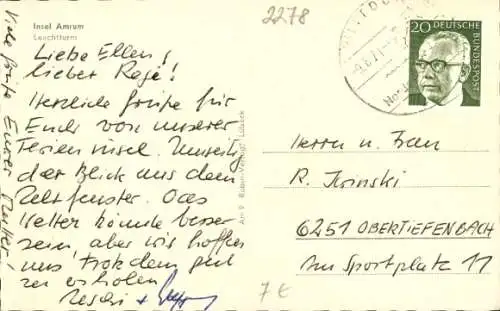 Insel Amrum
Leuchtturm
Liebe Ellen!
lieber Rege!
Herzliche Grüße für
Euch von unserer
Ferieninsel. Umseitig
der Blick aus dem
Zeltfenster. Das
Wetter könnte besser
sein, aber wir hoffen
uns trotzdem gut
zu erholen
+
Viele Grüße Eurer Mutter!
2278
20 DEUTSCHE BUNDESPOST
Herrn u. Frau
R.
6251 OBERTIEFENBACH
Am Sportplatz 11
7 €
Lübeck